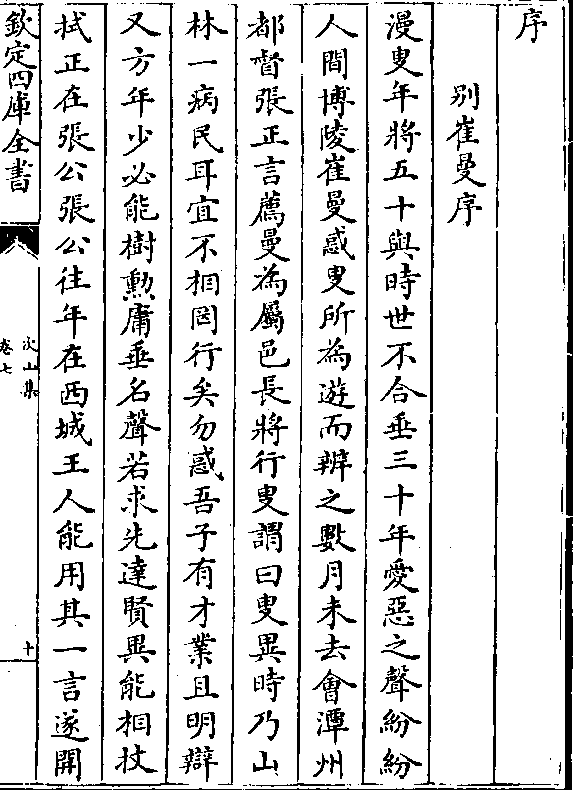 序
别崔曼序
漫叟年將五十與時世不合垂三十年愛惡之聲紛紛
人間博陵崔曼惑叟所為遊而辨之數月未去會潭州
都督張正言薦曼為屬邑長將行叟謂曰叟異時乃山
林一病民耳宜不相罔行矣勿惑吾子有才業且明辯
又方年少必能樹勲庸垂名聲若求先達賢異能相扶
拭正在張公張公往年在西城王人能用其一言遂開
欽定四庫全書
次山集
卷七
十